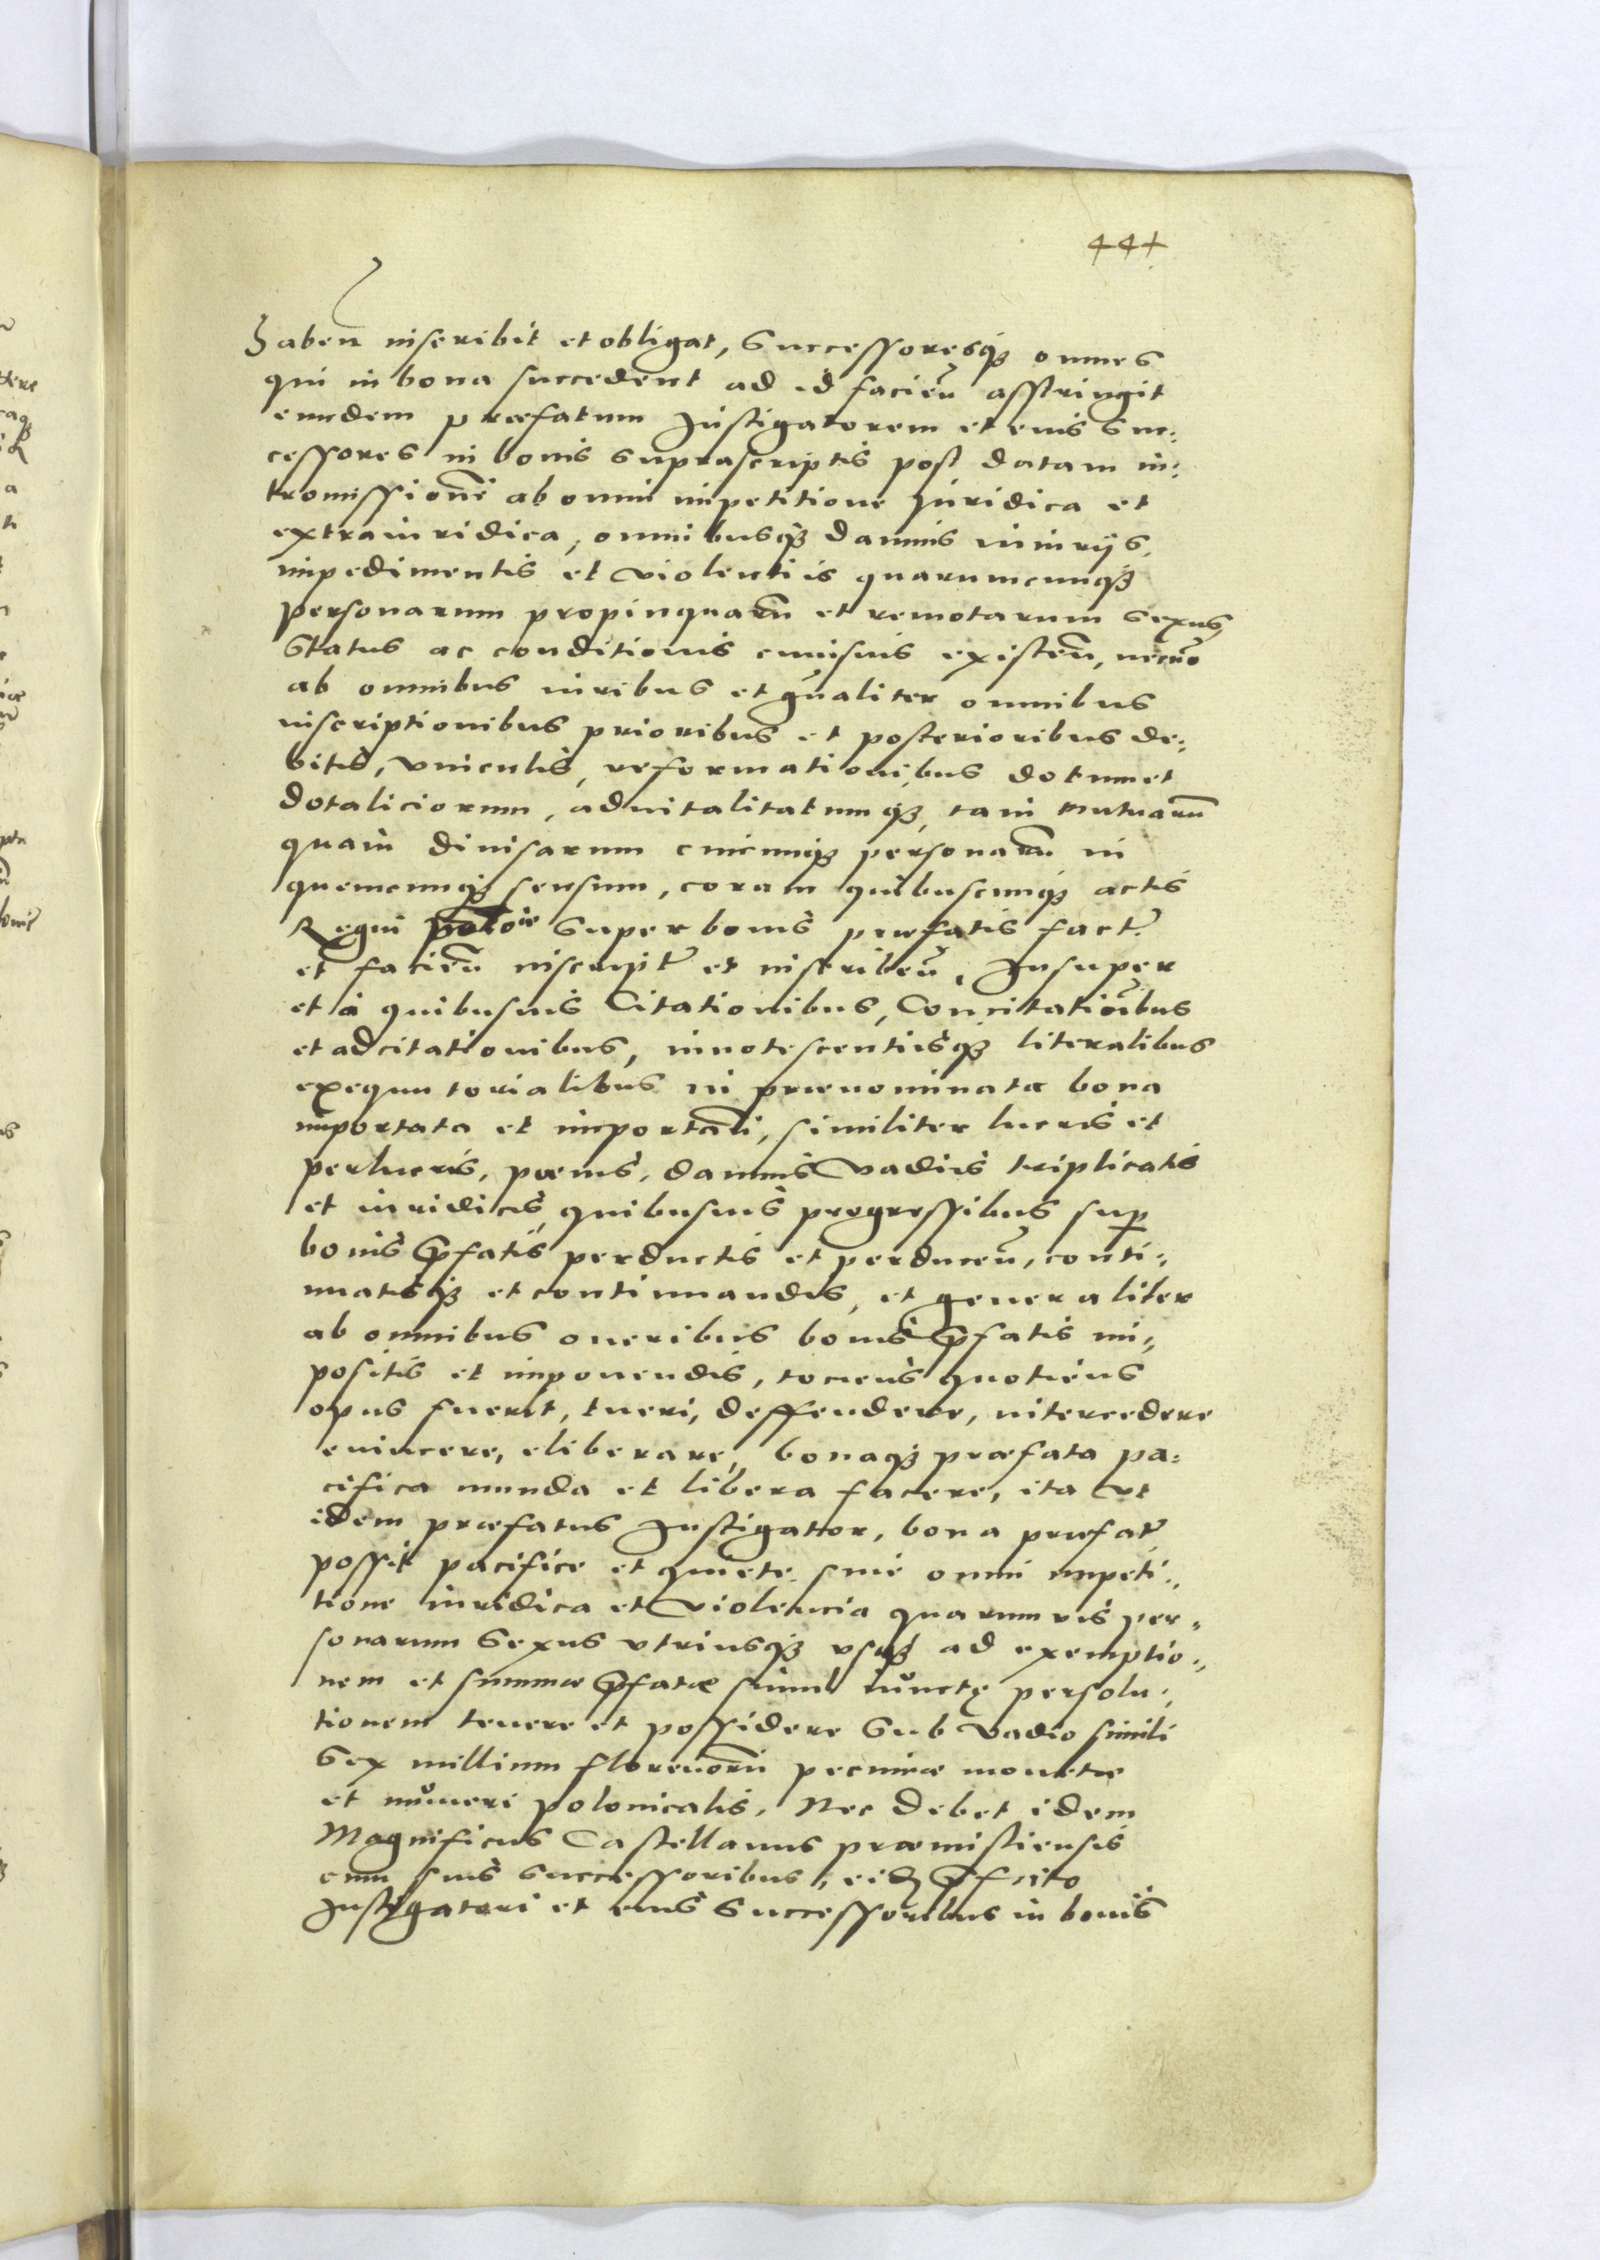 444
Haben inscribit et obligat, Successoresq; omnes
qui in bona succedent ad id facien astringit
eundem præfatum Instigatorem et eius Suc:
cessores in bonis suprascriptis post datam in:
tromissione ab omni impetitione Iuridica et
extraiuridica, omnibusq; damnis iniurijs,
impedimentis et violentiis quarumcunq;
personarum propinquaru et remotarum sexus,
Status ac conditionis cuiusuis existen, necno
ab omnibus iuribus et gnaliter omnibus
inscriptionibus prioribus et posterioribus de:
bitis, vinculis, reformationibus dotum et
dotaliciorum, aduitalitatumq;, tam mutuaru
quam diuisarum cuicunq; personaru in
quemcunq; sensum, coram quibuscunq; actis
Regni Poloie super bonis præfatis fact
et facien inscript et inscriben, Insuper
et a quibusuis Citationibus, Concitationibus
et adcitationibus, innotescentiisq; literalibus
exequutorialibus in prænominata bona
importata et importandi, similiter lucris et
perlucris, pænis, damnis vadiis triplicatis
et iuridicis quibusuis progressibus sup
bonis pfatis perductis et perducen, conti:
nuatisq; et continuandis, et generaliter
ab omnibus oneribus bonis pfatis im:
positis et imponendis, tociens quotiens
opus fuerit, tueri, deffendere, intercedere
euincere, eliberare, bonaq; præfata pa:
cifica munda et libera facere, ita vt
idem præfatus Instigator, bona præfat
possit pacifice et quiete sine omni impeti:
tione iuridica et violencia quarumvis per:
sonarum Sexus vtriusq; vsq; ad exemptio:
nem et summæ pfatæ simul iunctę persolu:
tionem tenere et possidere Sub vadio simili
Sex millium florenoru pecuniæ monetæ
et numeri polonicalis, Nec debet idem
Magnificus Castellanus præmisliensis
cum suis successoribus, eid pfato
Instigatori et eius Successoribus in bonis